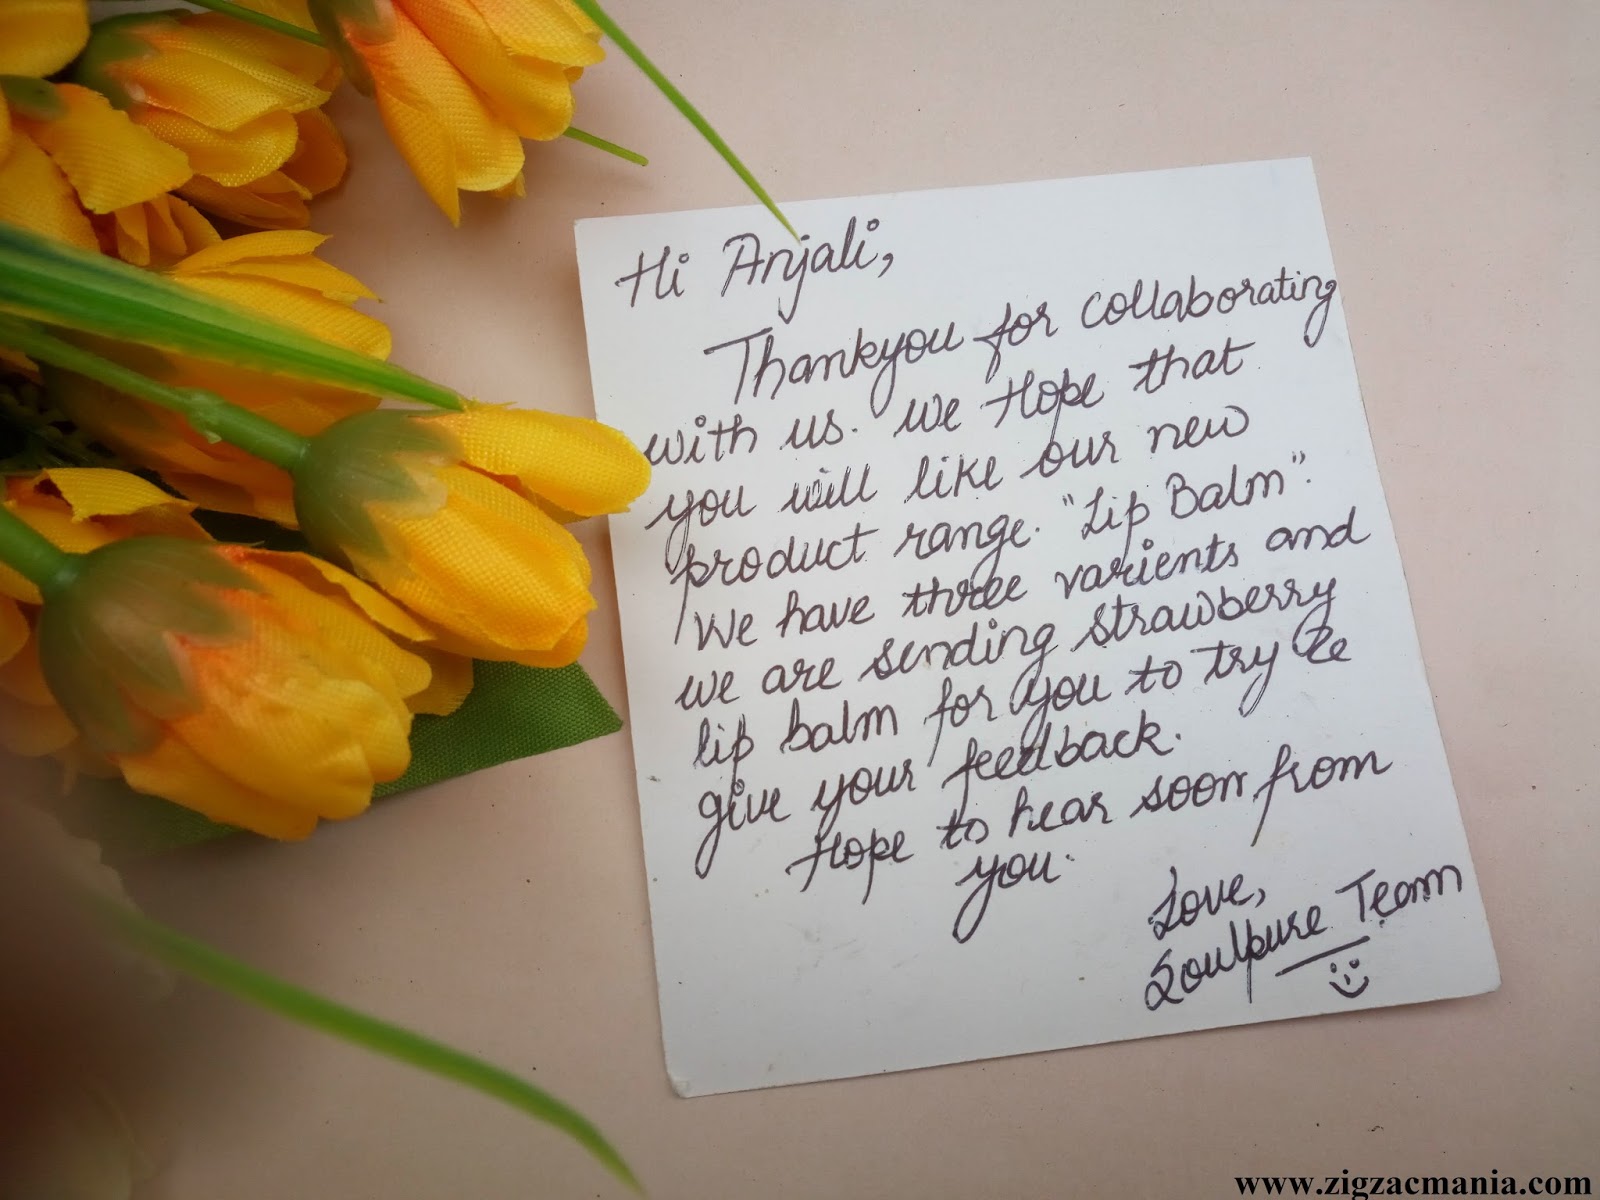 Hi Anjali,
Thankyou for collaborating
with us. We Hope that
you will like our new
product range. "Lip Balm".
We have three varients and
we are sending strawberry
lip balm for you to try &
give your feedback.
Hope to hear soon from
you.
Love,
Soulpure Team
www.zigzacmania.com